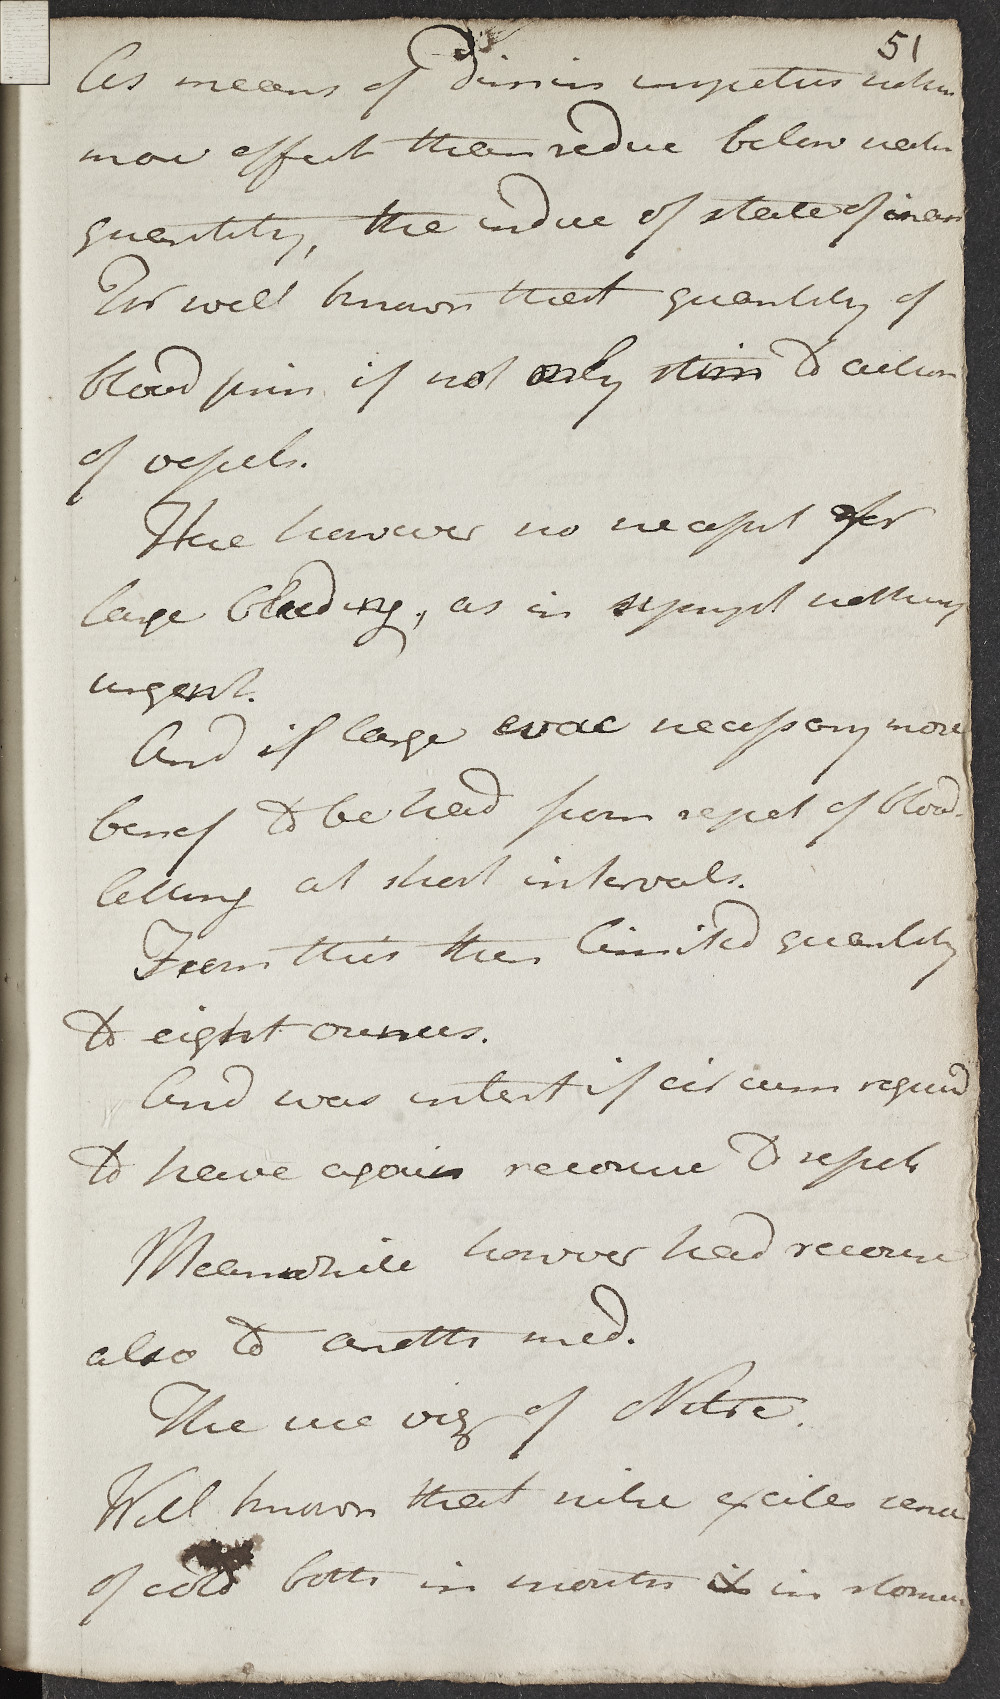 51
As means of dimin impetus
more effect than reduc below
quantity, the induc of state of inan
Tis well known that quantity of
blood prin if not only stim to action
of vessels.
Here however no necesst for
large bleeding, as in sympt nothing
urgent.
And if large evac necessary more
benef to be had from repet of blood
letting at short intervals.
From this then limited quantity
to eight ounces.
And was intent if circum requird
to have again recourse to repet
Meanwhile however had recourse
also to anoth med.
The use viz of Nitre.
Well known that nitre excites sens
of cold both in mouth & in stomac